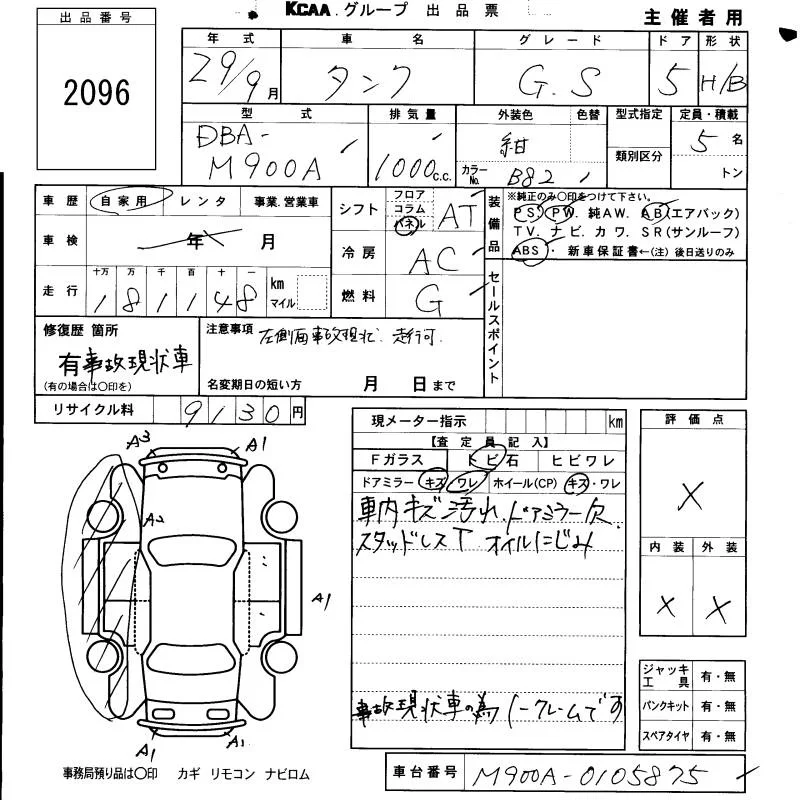 KCAA グループ 出品票
主催者用
出品番号
2096
年式 車名 グレード ドア 形状
29/9月 タンク G.S 5 H/B
型式 排気量 外装色 色替 型式指定 定員・積載
DBA-
M900A
1000c.c.
紺
カラーNo. B82
類別区分
5名
トン
車歴 自家用 レンタ 事業.営業車
シフト フロア コラム パネル AT
装備品
※純正のみ〇印をつけて下さい。
PS. PW. 純AW. AB(エアバック)
TV. ナビ. カワ. SR(サンルーフ)
ABS・ 新車保証書←(注) 後日送りのみ
車検 年 月
冷房 AC
走行 十万 万 千 百 十 一
181148 km マイル
燃料 G
セールスポイント
修復歴 箇所
有事故現状車
(有の場合は〇印を)
注意事項 左側面事故現状. 走行可.
名変期日の短い方 月 日まで
リサイクル料 9130円
現メーター指示 km
【査定員記入】
Fガラス トビ石 ヒビワレ
ドアミラー キズ ワレ ホイール(CP) キズ・ワレ
車内キズ汚れ.ドアミラー欠.
スタッドレスT オイルにじみ
事故現状車の為ノークレームです
評価点
X
内装 外装
X X
A3 A1
A2
A1
A1 A1
ジャッキ工具 有・無
パンクキット 有・無
スペアタイヤ 有・無
事務局預り品は〇印 カギ リモコン ナビロム
車台番号 M900A-0105875